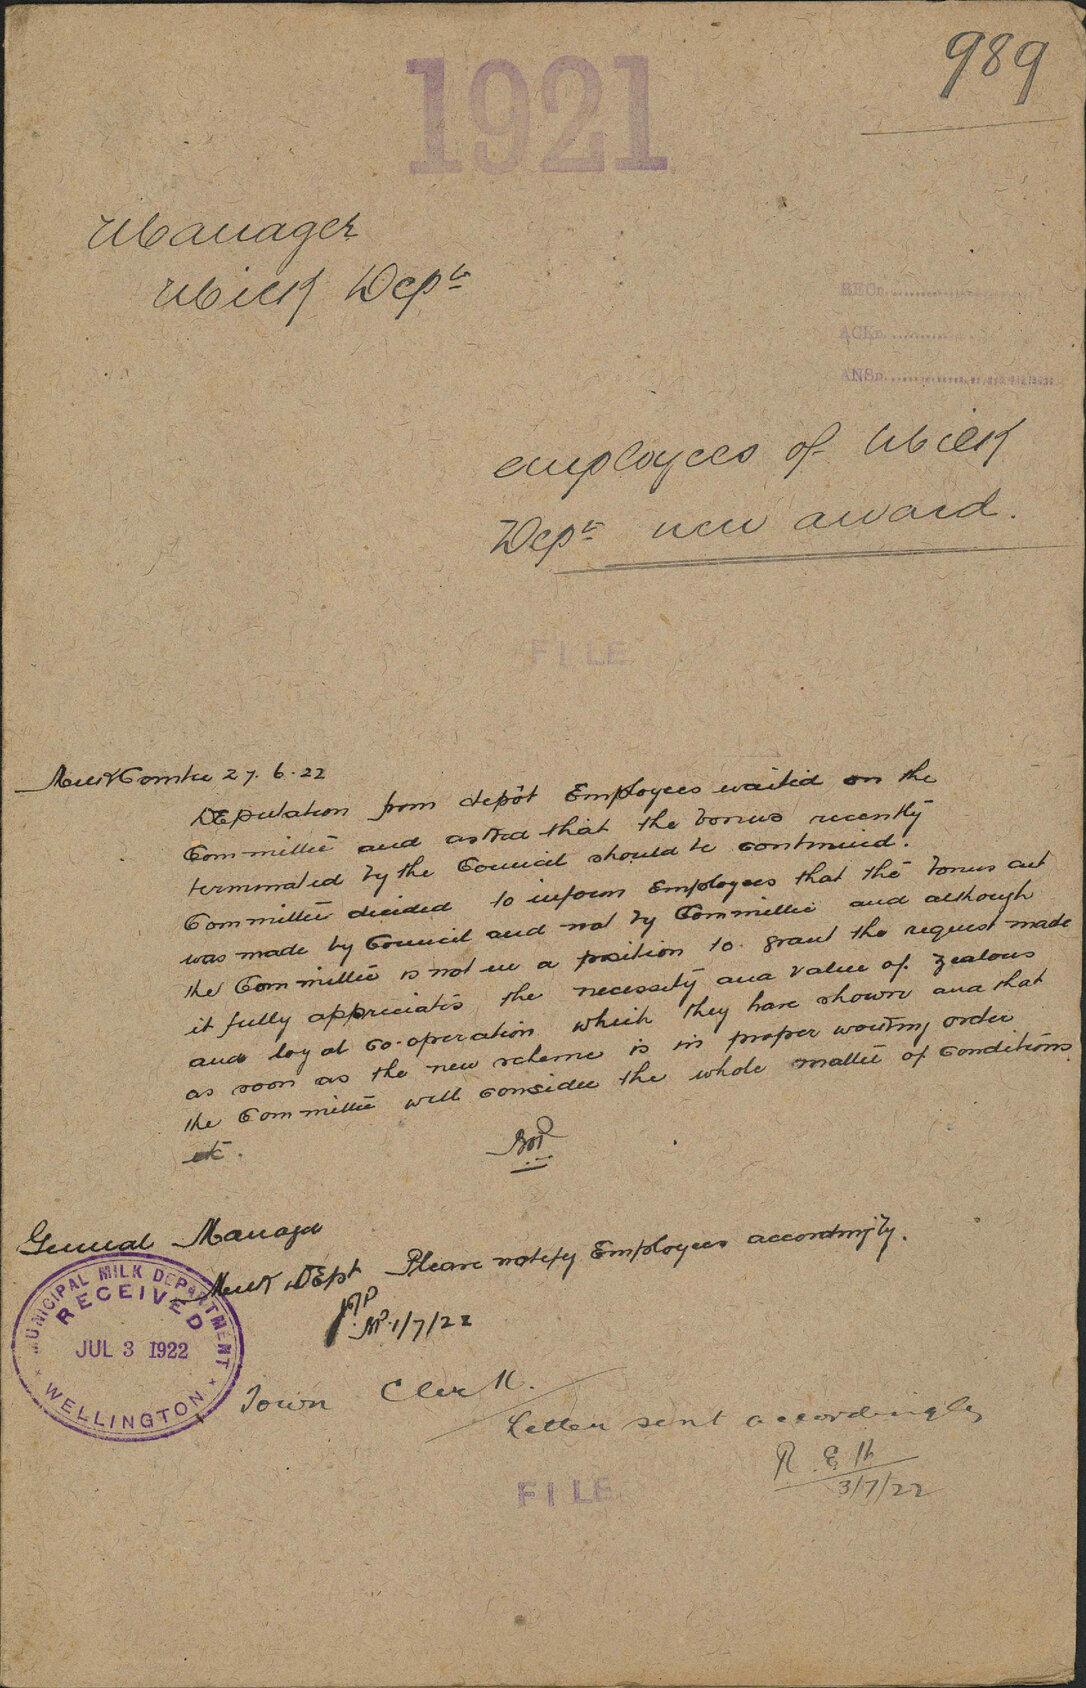 1921
989
Manager
Milk Dept
RECD.
ACKD.
ANSD.
employees of Milk
Dept new award.
FILE
Milk Comtee 27.6.22
Deputation from depôt Employees waited on the
Committee and asked that the bonus recently
terminated by the Council should be continued.
Committee decided to inform Employees that the bonus cut
was made by Council and not by Committee and although
the Committee is not in a position to grant the request made
it fully appreciates the necessity and value of zealous
and loyal co-operation which they have shown and that
as soon as the new scheme is in proper working order
the Committee will consider the whole matter of conditions
etc.
General Manager
Milk Dept Please notify Employees accordingly.
1/7/22
MUNICIPAL MILK DEPARTMENT
RECEIVED
JUL 3 1922
WELLINGTON
Town Clerk.
Letter sent accordingly
R.E.H
3/7/22
FILE